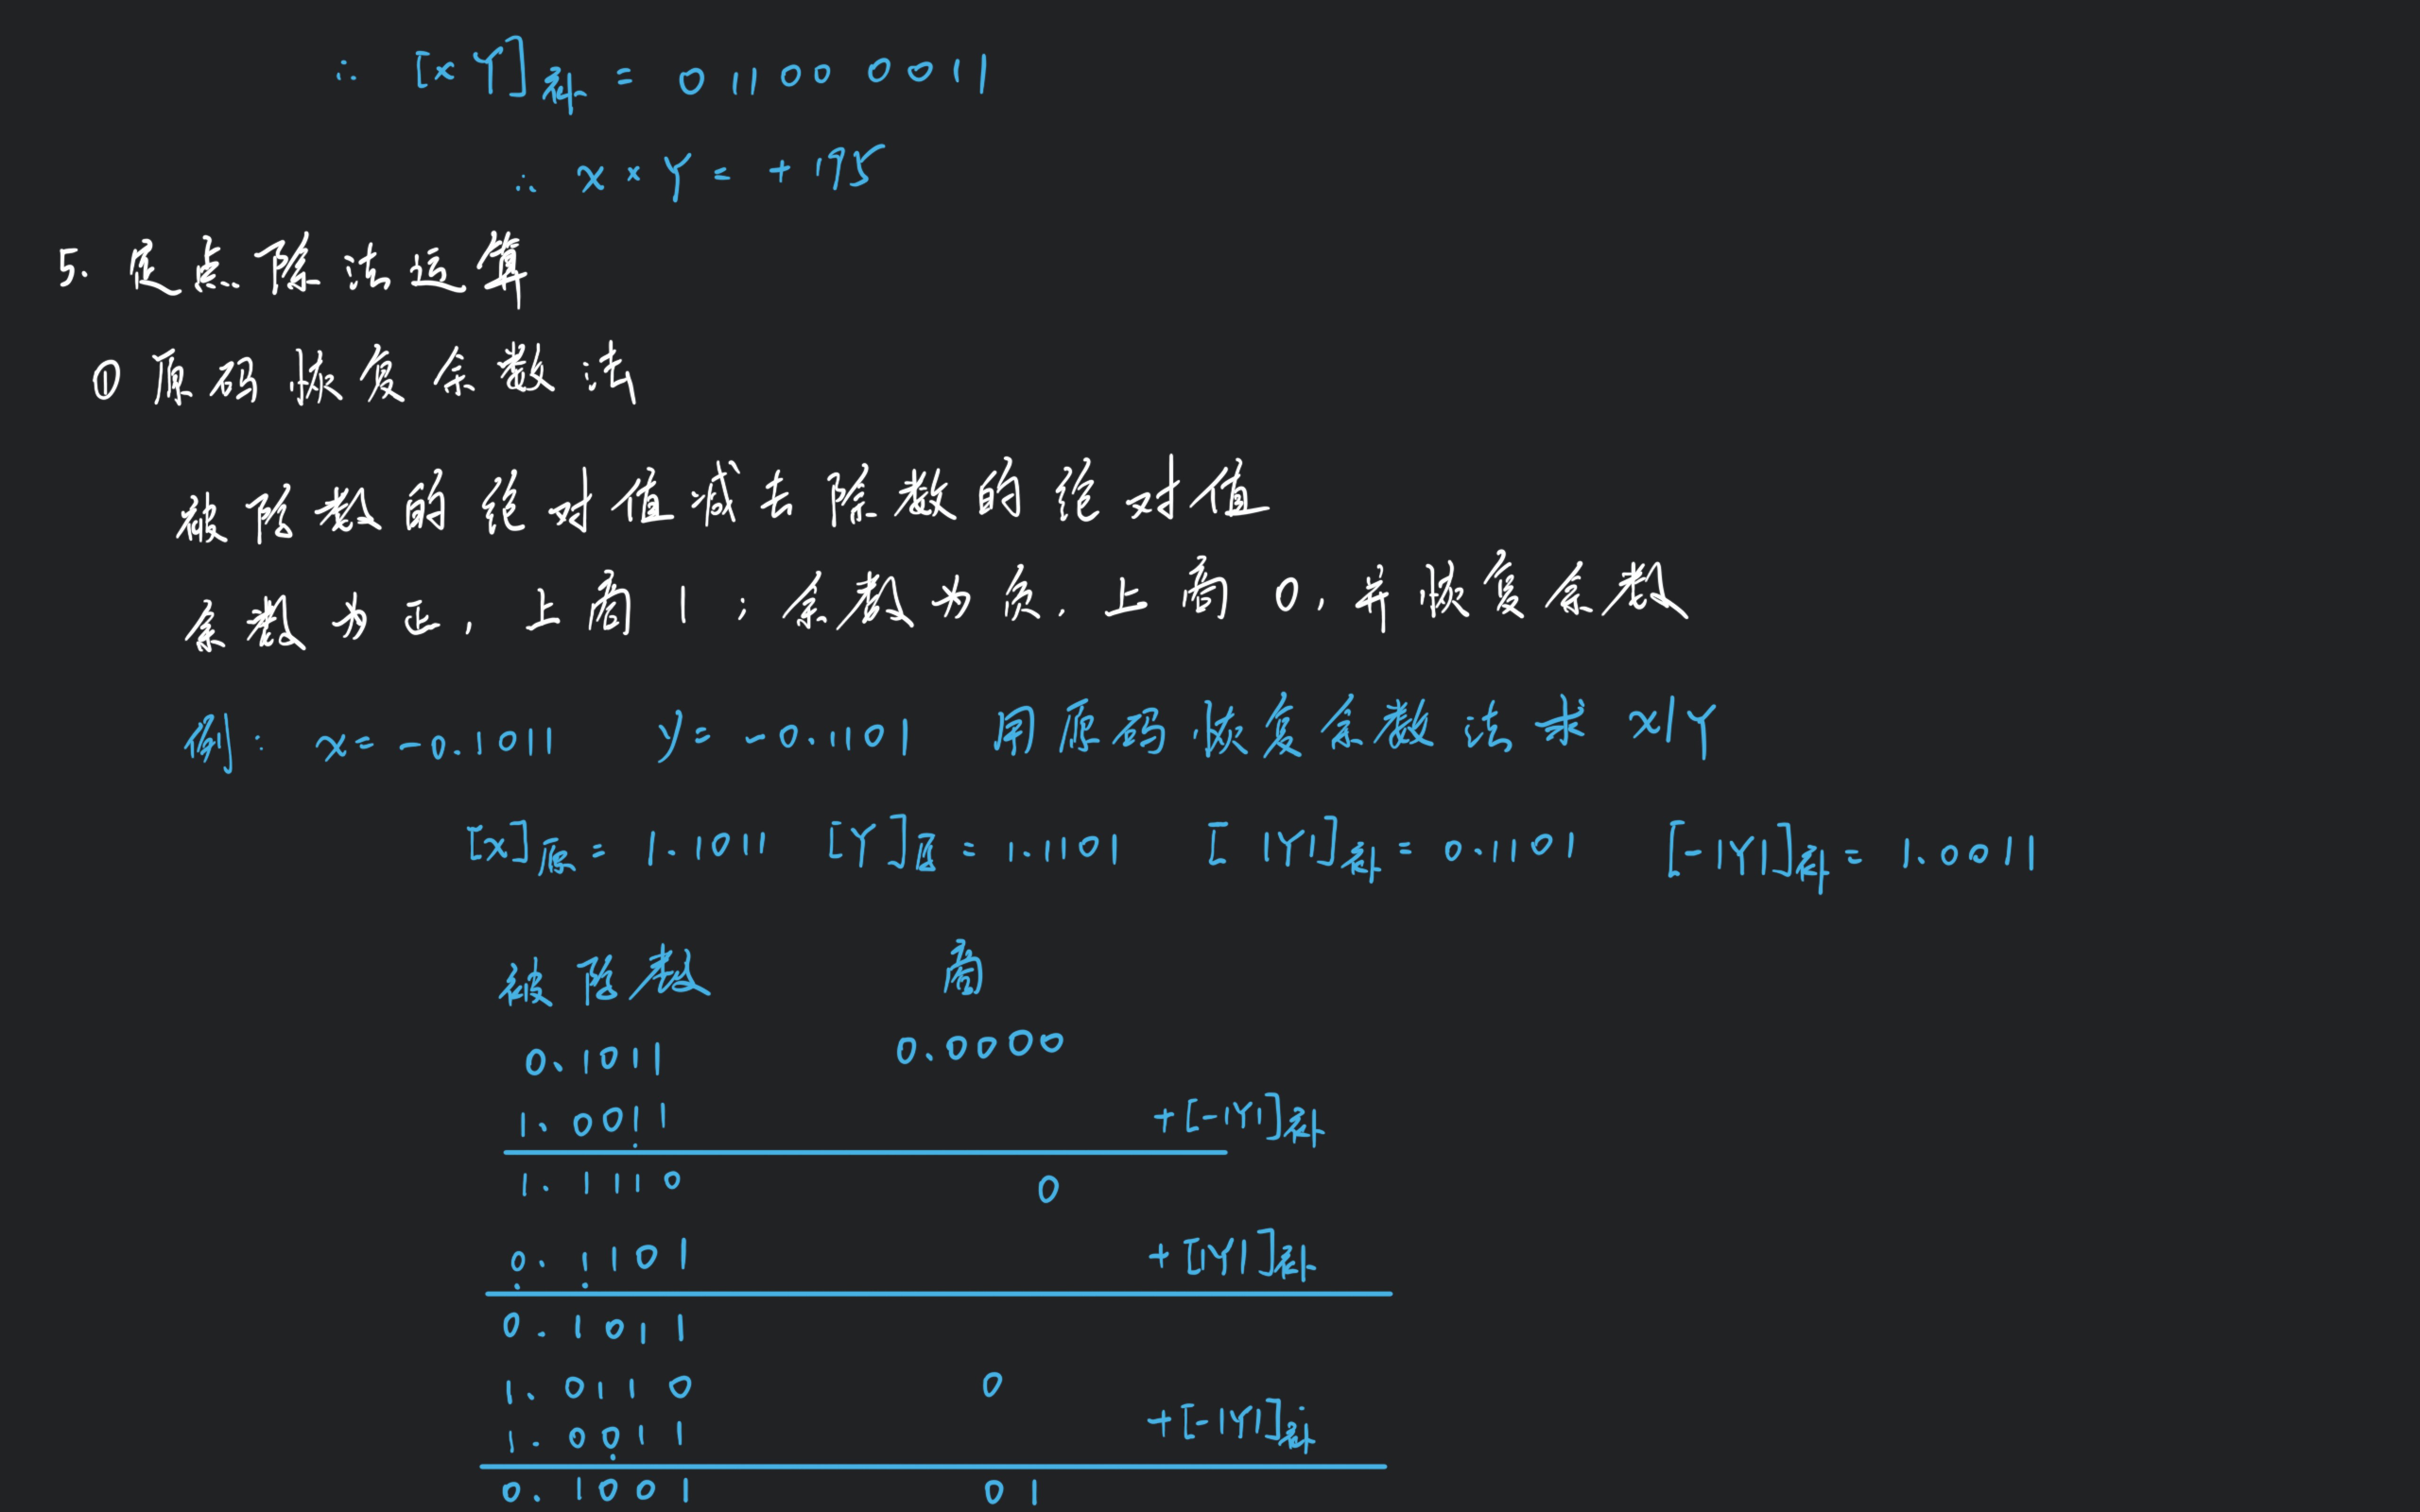 ∴ [x Y]补 = 0 1100 0011
∴ x × Y = + 195
5. 定点除法运算
① 原码恢复余数法
被除数的绝对值减去除数的绝对值
余数为正，上商 1；余数为负，上商 0，并恢复余数
例： x = -0.1011 y = -0.1101 用原码恢复余数法求 x/Y
[x]原 = 1.1011 [Y]原 = 1.1101 [|Y|]补 = 0.1101 [-|Y|]补 = 1.0011
被除数 商
0.1011 0.0000
1.0011 +[-|Y|]补
1.1110 0
0.1101 +[|Y|]补
0.1011
1.0110 0
1.0011 +[-|Y|]补
0.1001 01